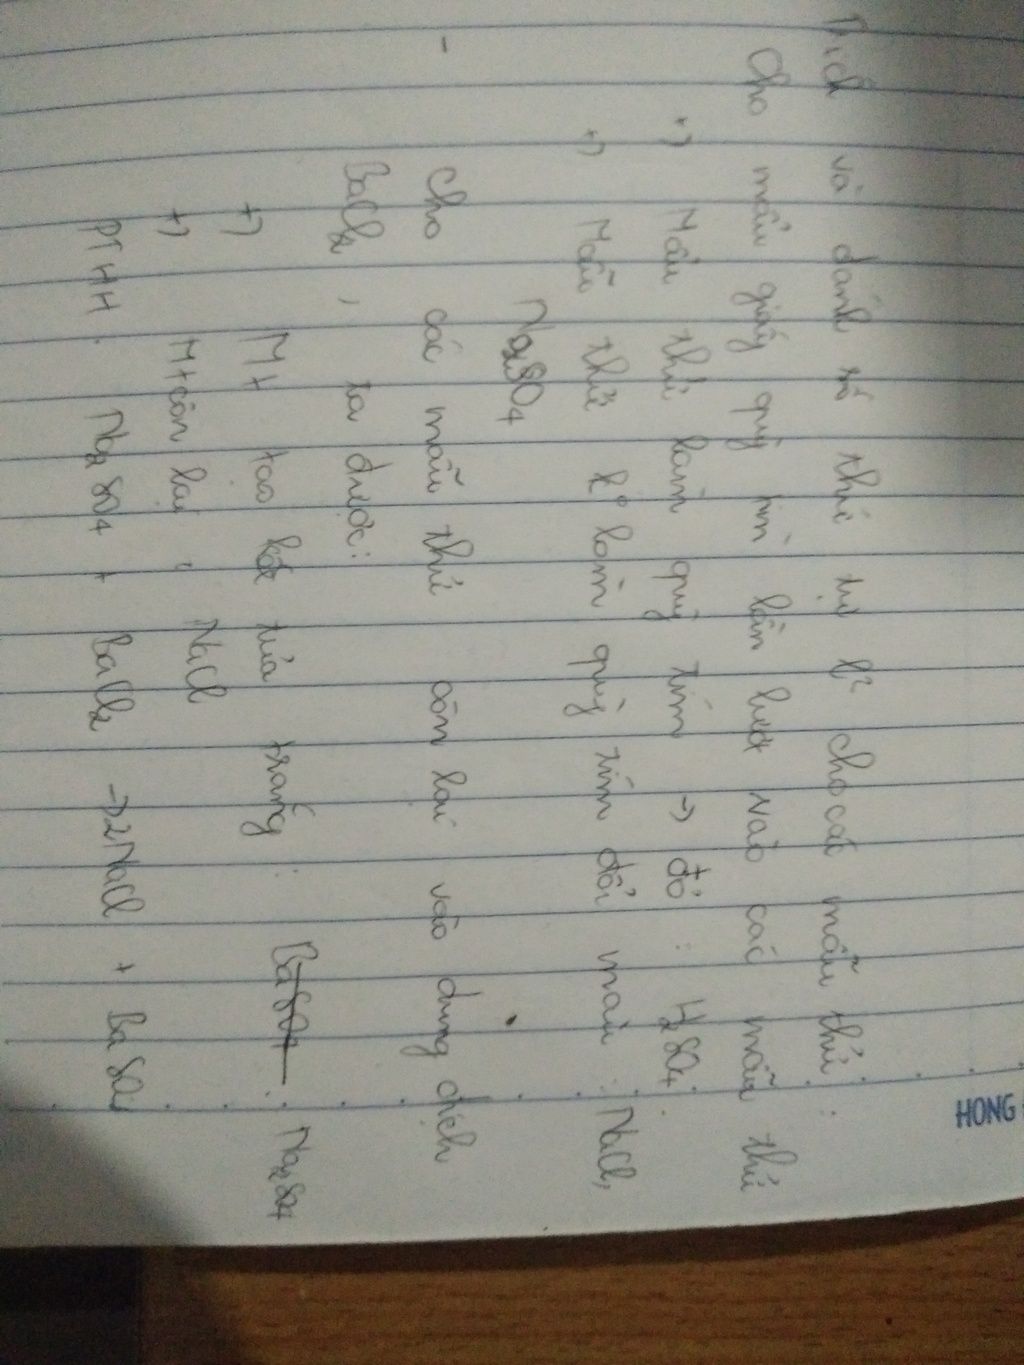 HONG
Trích và đánh số thứ tự l² cho các mẫu thử :
Cho mẩu giấy quỳ tím lần lượt vào các mẫu thử
+) Mẫu thử làm quỳ tím → đỏ : H₂SO₄.
+) Mẫu thử k° làm quỳ tím đổi màu : NaCl,
Na₂SO₄
- Cho các mẫu thử còn lại vào dung dịch
BaCl₂, ta được :
+) MT tạo kết tủa trắng : Na₂SO₄
+) MT còn lại : NaCl
PTHH : Na₂SO₄ + BaCl₂ → 2NaCl + BaSO₄